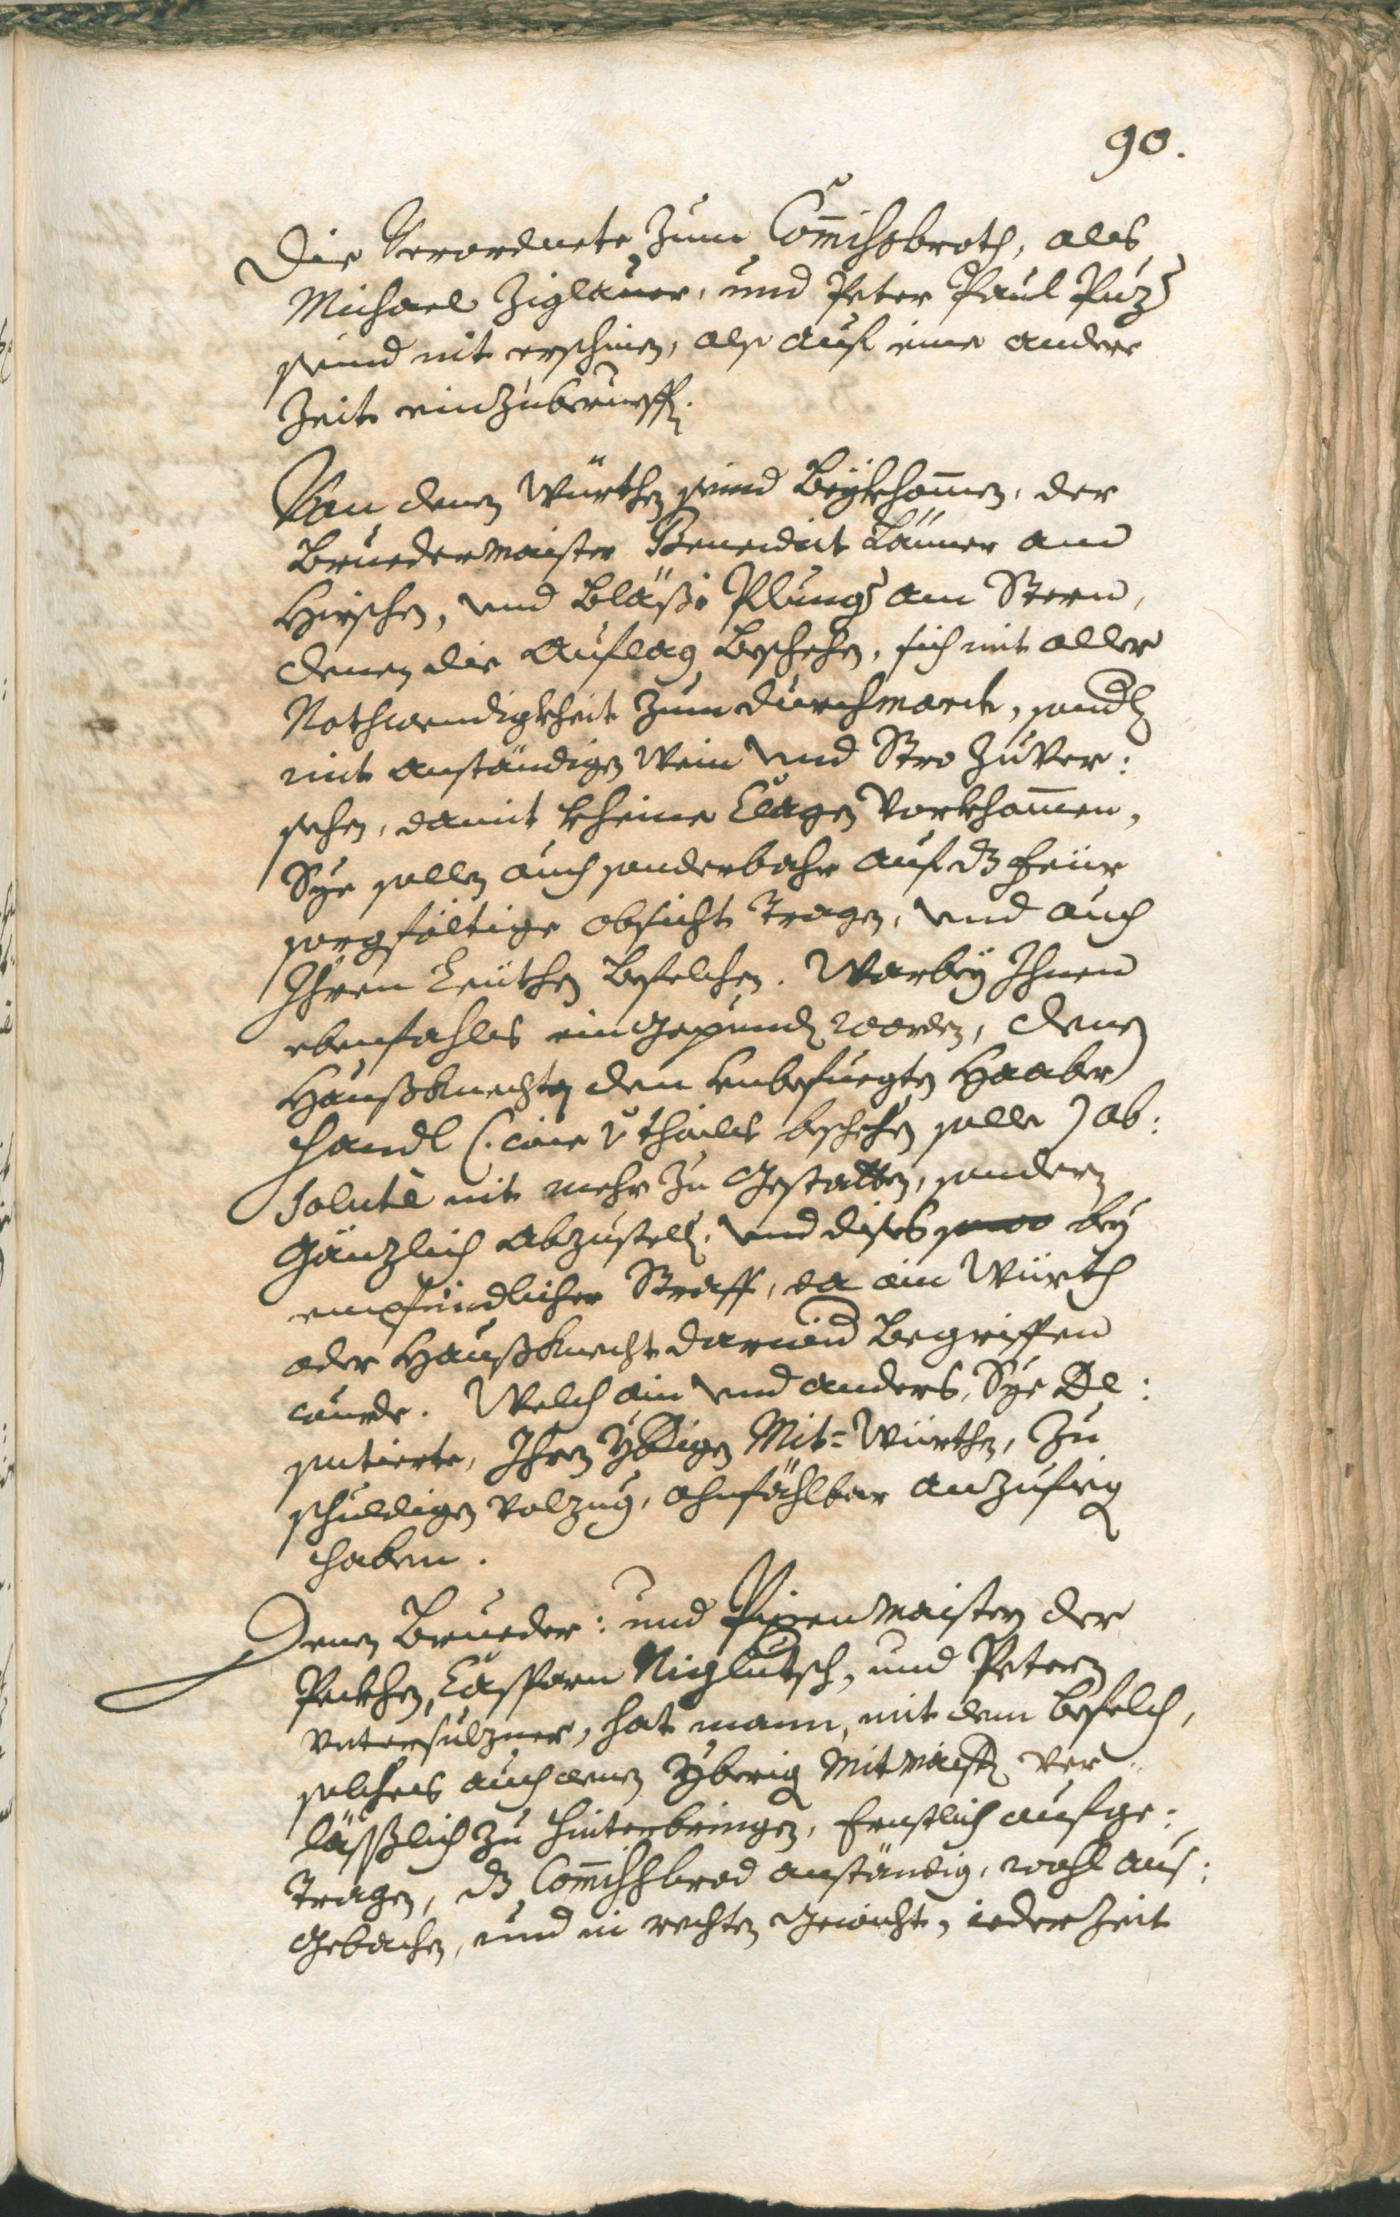 90.
Die Verordnete zum Com̄issbroth, als
Michael Ziglauer, und Peter Paul Puz
seind nit erschinen, also auf eine andere
Zeit einzuberueffen.
Von denen Würthen seind Beykhom̄en, der
Bruedermaister Benedict Lanner am
Hirschen, und Bläßi Plung am Stern,
denen die Auflag beschehen, sich mit aller
Nothwendigkheit zum durchmarch, sonderlich
mit anständigen Wein und Stro zuver:
sehen, damit kheine Clagen vorkhom̄en,
Sye sollen auch sonderbahr auf dz feür
sorgfältige obsicht tragen, und auch
Ihren Leüthen befelchen. Warbey Ihnen
ebenfahls eingepunden worden, denen
Haußknechten den unbefuegten Haaber
handl (: wie v theils beschehen solle) ab:
solutè nit mehr zu gestatten, sondern
gänzlich abzustellen, und dises bey
empfindlicher Straff, da ain Würth
oder Haußknecht darwid begriffen
wurde. Welch ain und anders, Sye De:
putierte, Ihren ybrigen Mit=Würthen, zu
schuldigen volzug, ohnfählbar anzufieg
haben.
Denen Brueder: und Pixenmaistern der
Pekhen, Casparn Niglutsch, und Petern
Untersulzner, hat mann, mit dem befelch,
solches auch denen yberig Mitmaistern ver:
läßlich zu hinterbringen, Ernstlich aufge:
tragen, dz Com̄issbrod anständig, wohl aus:
gebachen, und in rechten gewicht, ieder Zeit